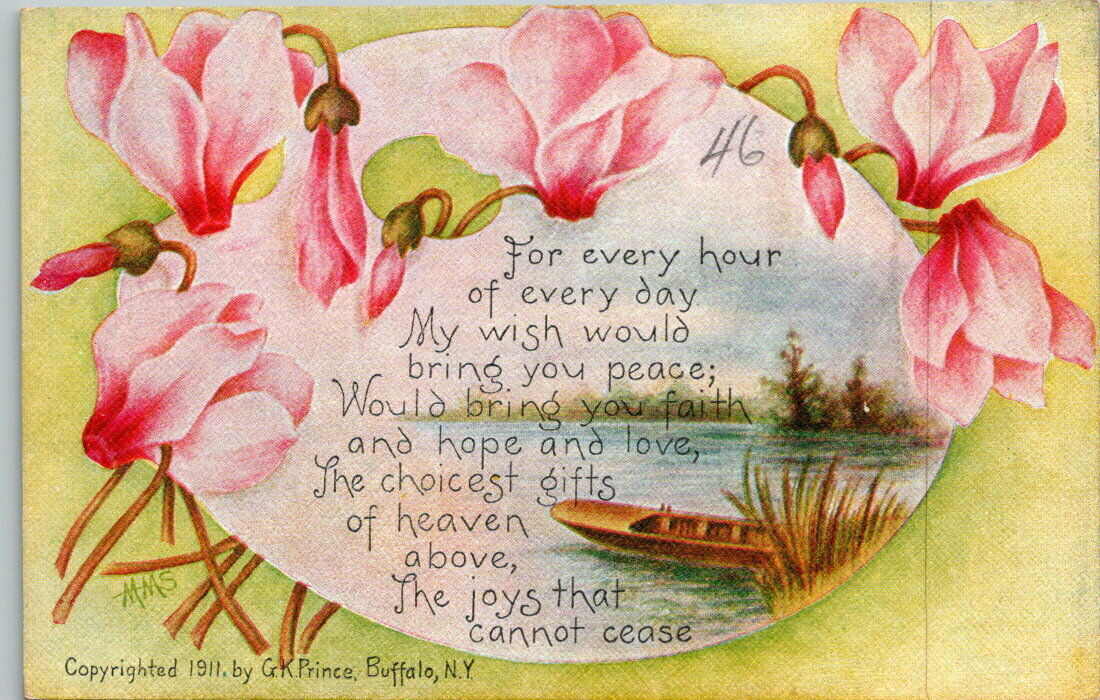 46
For every hour
of every day
My wish would
bring you peace;
Would bring you faith
and hope and love,
The choicest gifts
of heaven
above,
The joys that
cannot cease
MMS
Copyrighted 1911. by G.K Prince, Buffalo, N.Y.